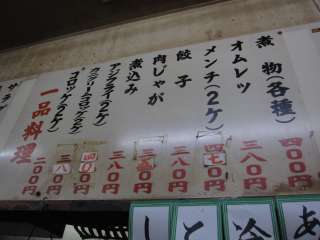 煮物(各種) 四〇〇円
オムレツ 三八〇円
メンチ(2ケ) 四七〇円
餃子 三八〇円
肉じゃが 三五〇円
煮込み 三八〇円
アジフライ(2ケ) 四〇〇円
クリームコロッケ(2ケ) 三八〇円
コロッケ(2ケ)
一品料理 二〇〇円
サラダ
あ
冷
と
し